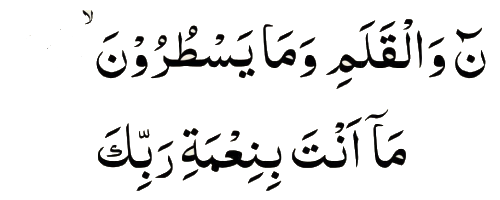 نٓ وَالْقَلَمِ وَمَا يَسْطُرُوْنَ ۙ
مَآ اَنْتَ بِنِعْمَةِ رَبِّكَ